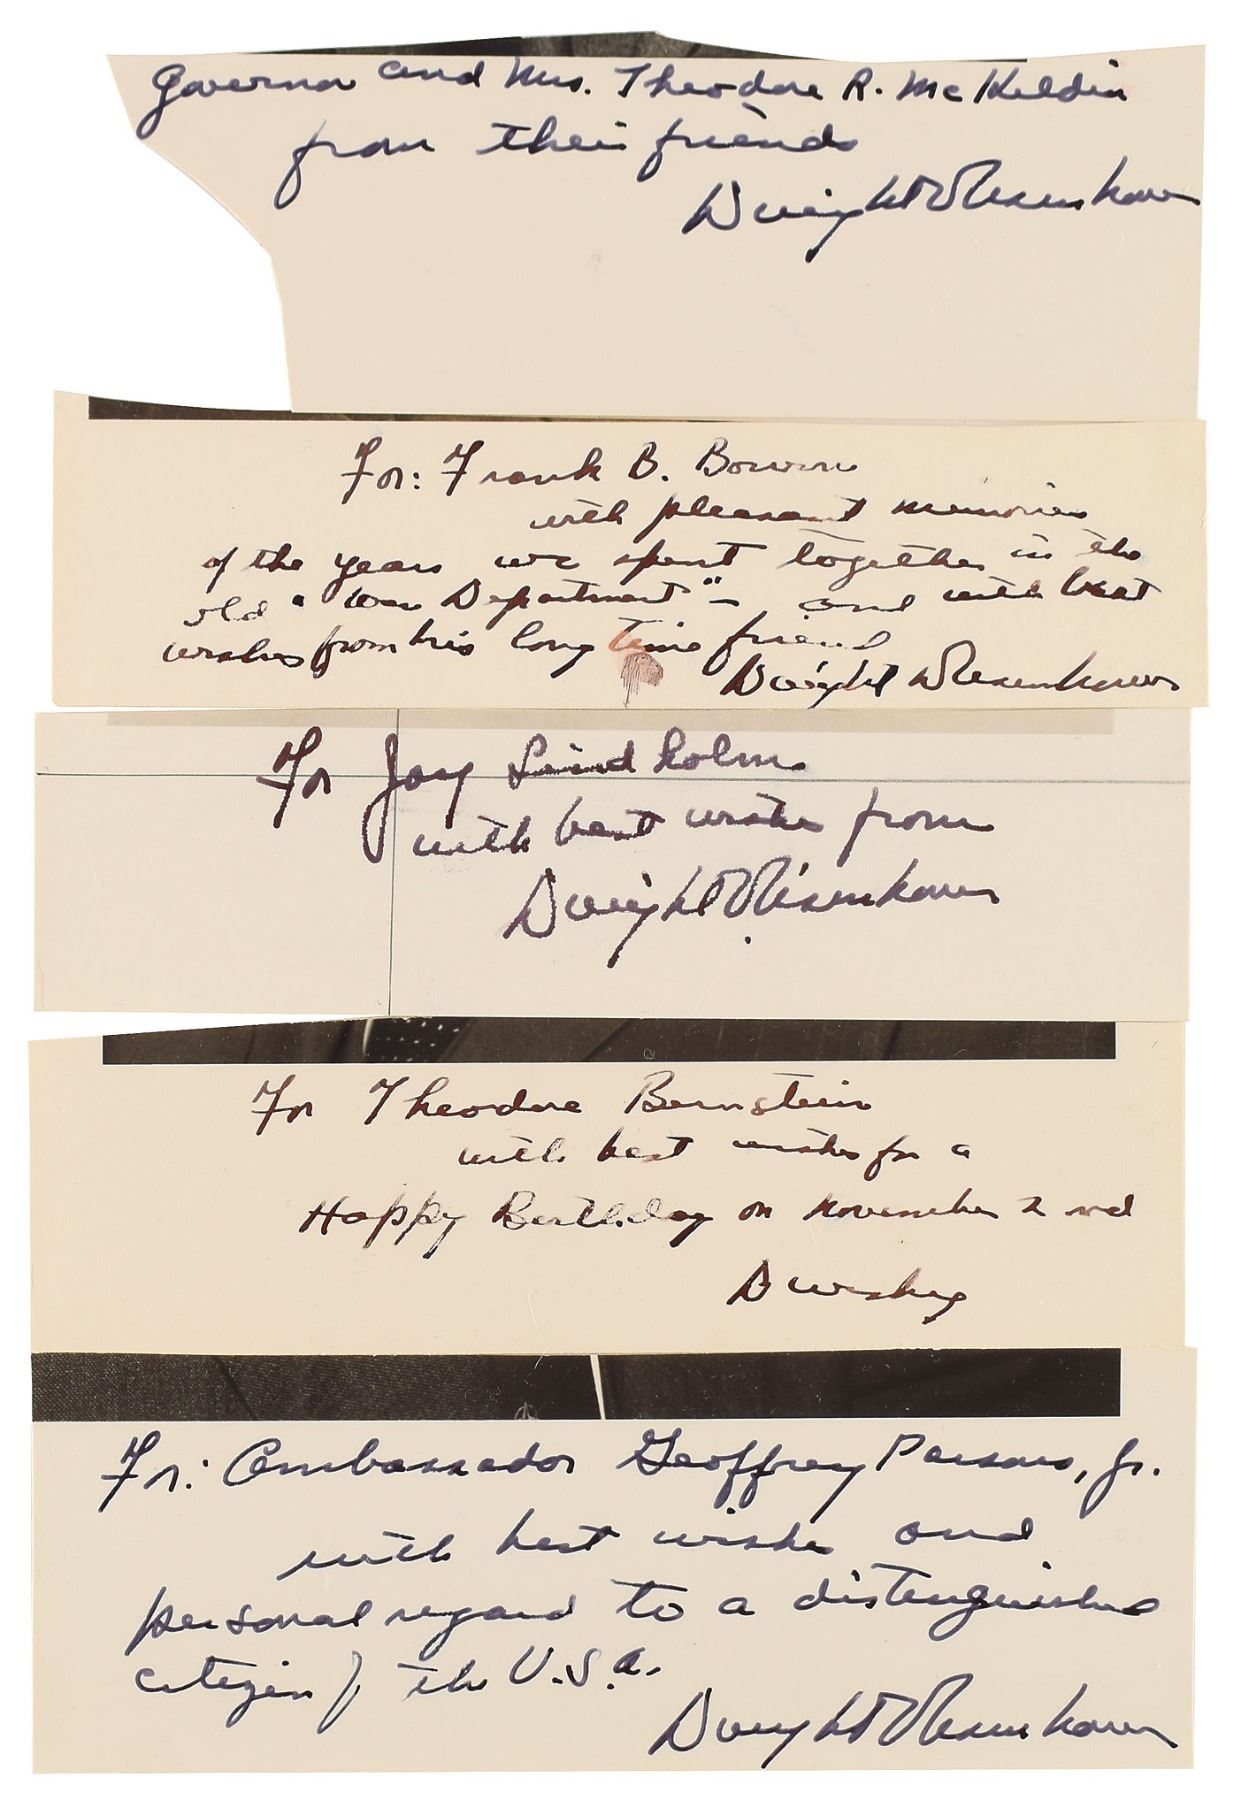 Governor and Mrs. Theodore R. McKeldin
from their friends
Dwight D Eisenhower
For: Frank B. Bowen
with pleasant memories
of the years we spent together in the
old "War Department" – and with best
wishes from his long time friend
Dwight D Eisenhower
For Jay Lindholm
with best wishes from
Dwight D Eisenhower
For Theodore Bernstein
with best wishes for a
Happy Birthday on November 2nd
For: Ambassador Geoffrey Parsons, Jr.
with best wishes and
personal regard to a distinguished
citizen of the U.S.A.
Dwight D Eisenhower